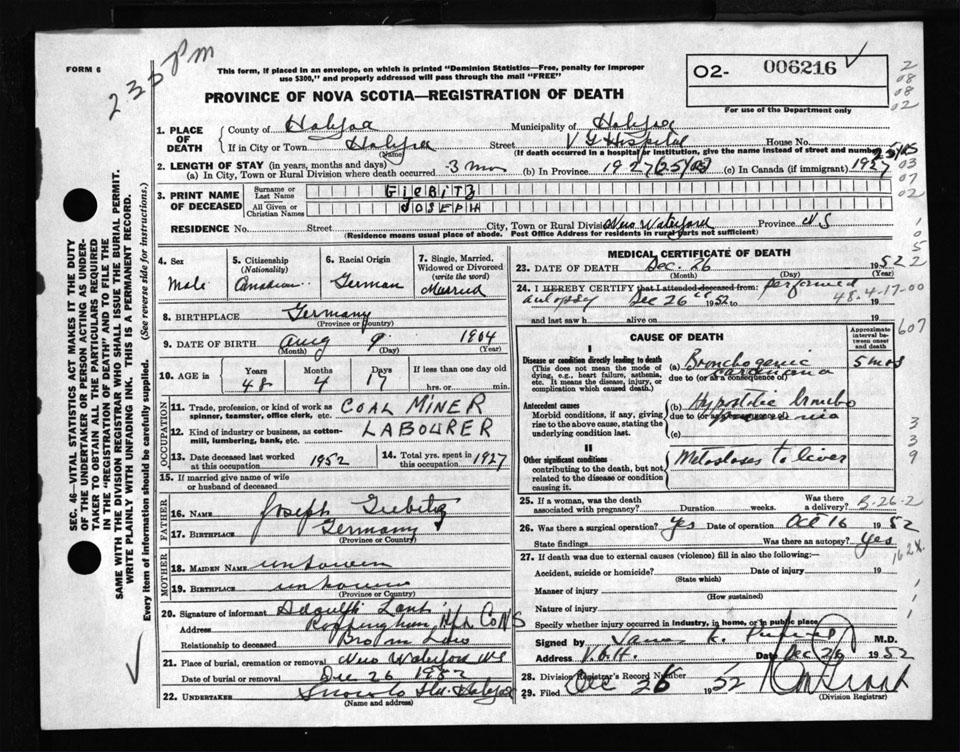 FORM 6
230 PM
This form, if placed in an envelope, on which is printed "Dominion Statistics—Free, penalty for improper
use $300," and properly addressed will pass through the mail "FREE"
02- 006216
For use of the Department only
2
08
08
02
PROVINCE OF NOVA SCOTIA—REGISTRATION OF DEATH
1. PLACE OF DEATH
County of Halifax Municipality of Halifax
If in City or Town Halifax Street V G Hospital House No.
(Name) (If death occurred in a hospital or institution, give the name instead of street and number)
2. LENGTH OF STAY (in years, months and days)
(a) In City, Town or Rural Division where death occurred 3 mos (b) In Province 1927 (25 yrs) (c) In Canada (if immigrant) 1927
25 yrs
03
07
02
3. PRINT NAME OF DECEASED
Surname or Last Name GIEBITZ
All Given or Christian Names JOSEPH
RESIDENCE No. Street City, Town or Rural Division New Waterford Province N S
(Residence means usual place of abode. Post Office Address for residents in rural parts not sufficient)
4. Sex Male
5. Citizenship (Nationality) Canadian
6. Racial Origin German
7. Single, Married, Widowed or Divorced (write the word) Married
8. BIRTHPLACE Germany
(Province or Country)
9. DATE OF BIRTH Aug 9 1904
(Month) (Day) (Year)
10. AGE in Years Months Days If less than one day
48 4 17 hrs. or min.
OCCUPATION
11. Trade, profession, or kind of work as spinner, teamster, office clerk, etc. COAL MINER
12. Kind of industry or business, as cotton-mill, lumbering, bank, etc. LABOURER
13. Date deceased last worked at this occupation 1952
14. Total yrs. spent in this occupation 1927
15. If married give name of wife or husband of deceased
FATHER
16. NAME Joseph Giebitz
17. BIRTHPLACE Germany
(Province or Country)
MOTHER
18. MAIDEN NAME unknown
19. BIRTHPLACE unknown
(Province or Country)
20. Signature of informant
Address Hfx Co NS
Relationship to deceased Bro in Law
21. Place of burial, cremation or removal New Waterford NS
Date of burial or removal Dec 26 1952
22. UNDERTAKER Snow & Co Ltd Halifax
(Name and address)
MEDICAL CERTIFICATE OF DEATH
23. DATE OF DEATH Dec. 26 1952
(Month) (Day) (Year)
24. I HEREBY CERTIFY that I attended deceased from: performed
autopsy Dec 26th 1952 to 19
48-4-17-00
and last saw h alive on 19
CAUSE OF DEATH
Approximate interval between onset and death
I
Disease or condition directly leading to death
(This does not mean the mode of dying, e.g., heart failure, asthenia, etc. It means the disease, injury, or complication which caused death.)
(a) Bronchogenic carcinoma 5 mos
due to (or as a consequence of)
Antecedent causes
Morbid conditions, if any, giving rise to the above cause, stating the underlying condition last.
(b) Hypostatic broncho pneumonia
due to (or as a consequence of)
(c)
II
Other significant conditions
contributing to the death, but not related to the disease or condition causing it.
Metastases to liver
25. If a woman, was the death associated with pregnancy? Duration weeks. Was there a delivery?
B-26-2
26. Was there a surgical operation? Yes Date of operation Oct 16 1952
State findings Was there an autopsy? Yes
27. If death was due to external causes (violence) fill in also the following:
Accident, suicide or homicide? Date of injury 19
(State which)
Manner of injury
(How sustained)
Nature of injury
Specify whether injury occurred in industry, in home, or in public place
Signed by James K. M.D.
Address V.G.H. Date Dec 26 1952
28. Division Registrar's Record Number
29. Filed Dec 26 1952
(Division Registrar)
607
3
3
9
SEC. 46—VITAL STATISTICS ACT MAKES IT THE DUTY
OF THE UNDERTAKER OR PERSON ACTING AS UNDER-
TAKER TO OBTAIN ALL THE PARTICULARS REQUIRED
IN THE "REGISTRATION OF DEATH" AND TO FILE THE
SAME WITH THE DIVISION REGISTRAR WHO SHALL ISSUE THE BURIAL PERMIT.
WRITE PLAINLY WITH UNFADING INK. THIS IS A PERMANENT RECORD.
Every item of information should be carefully supplied. (See reverse side for instructions.)